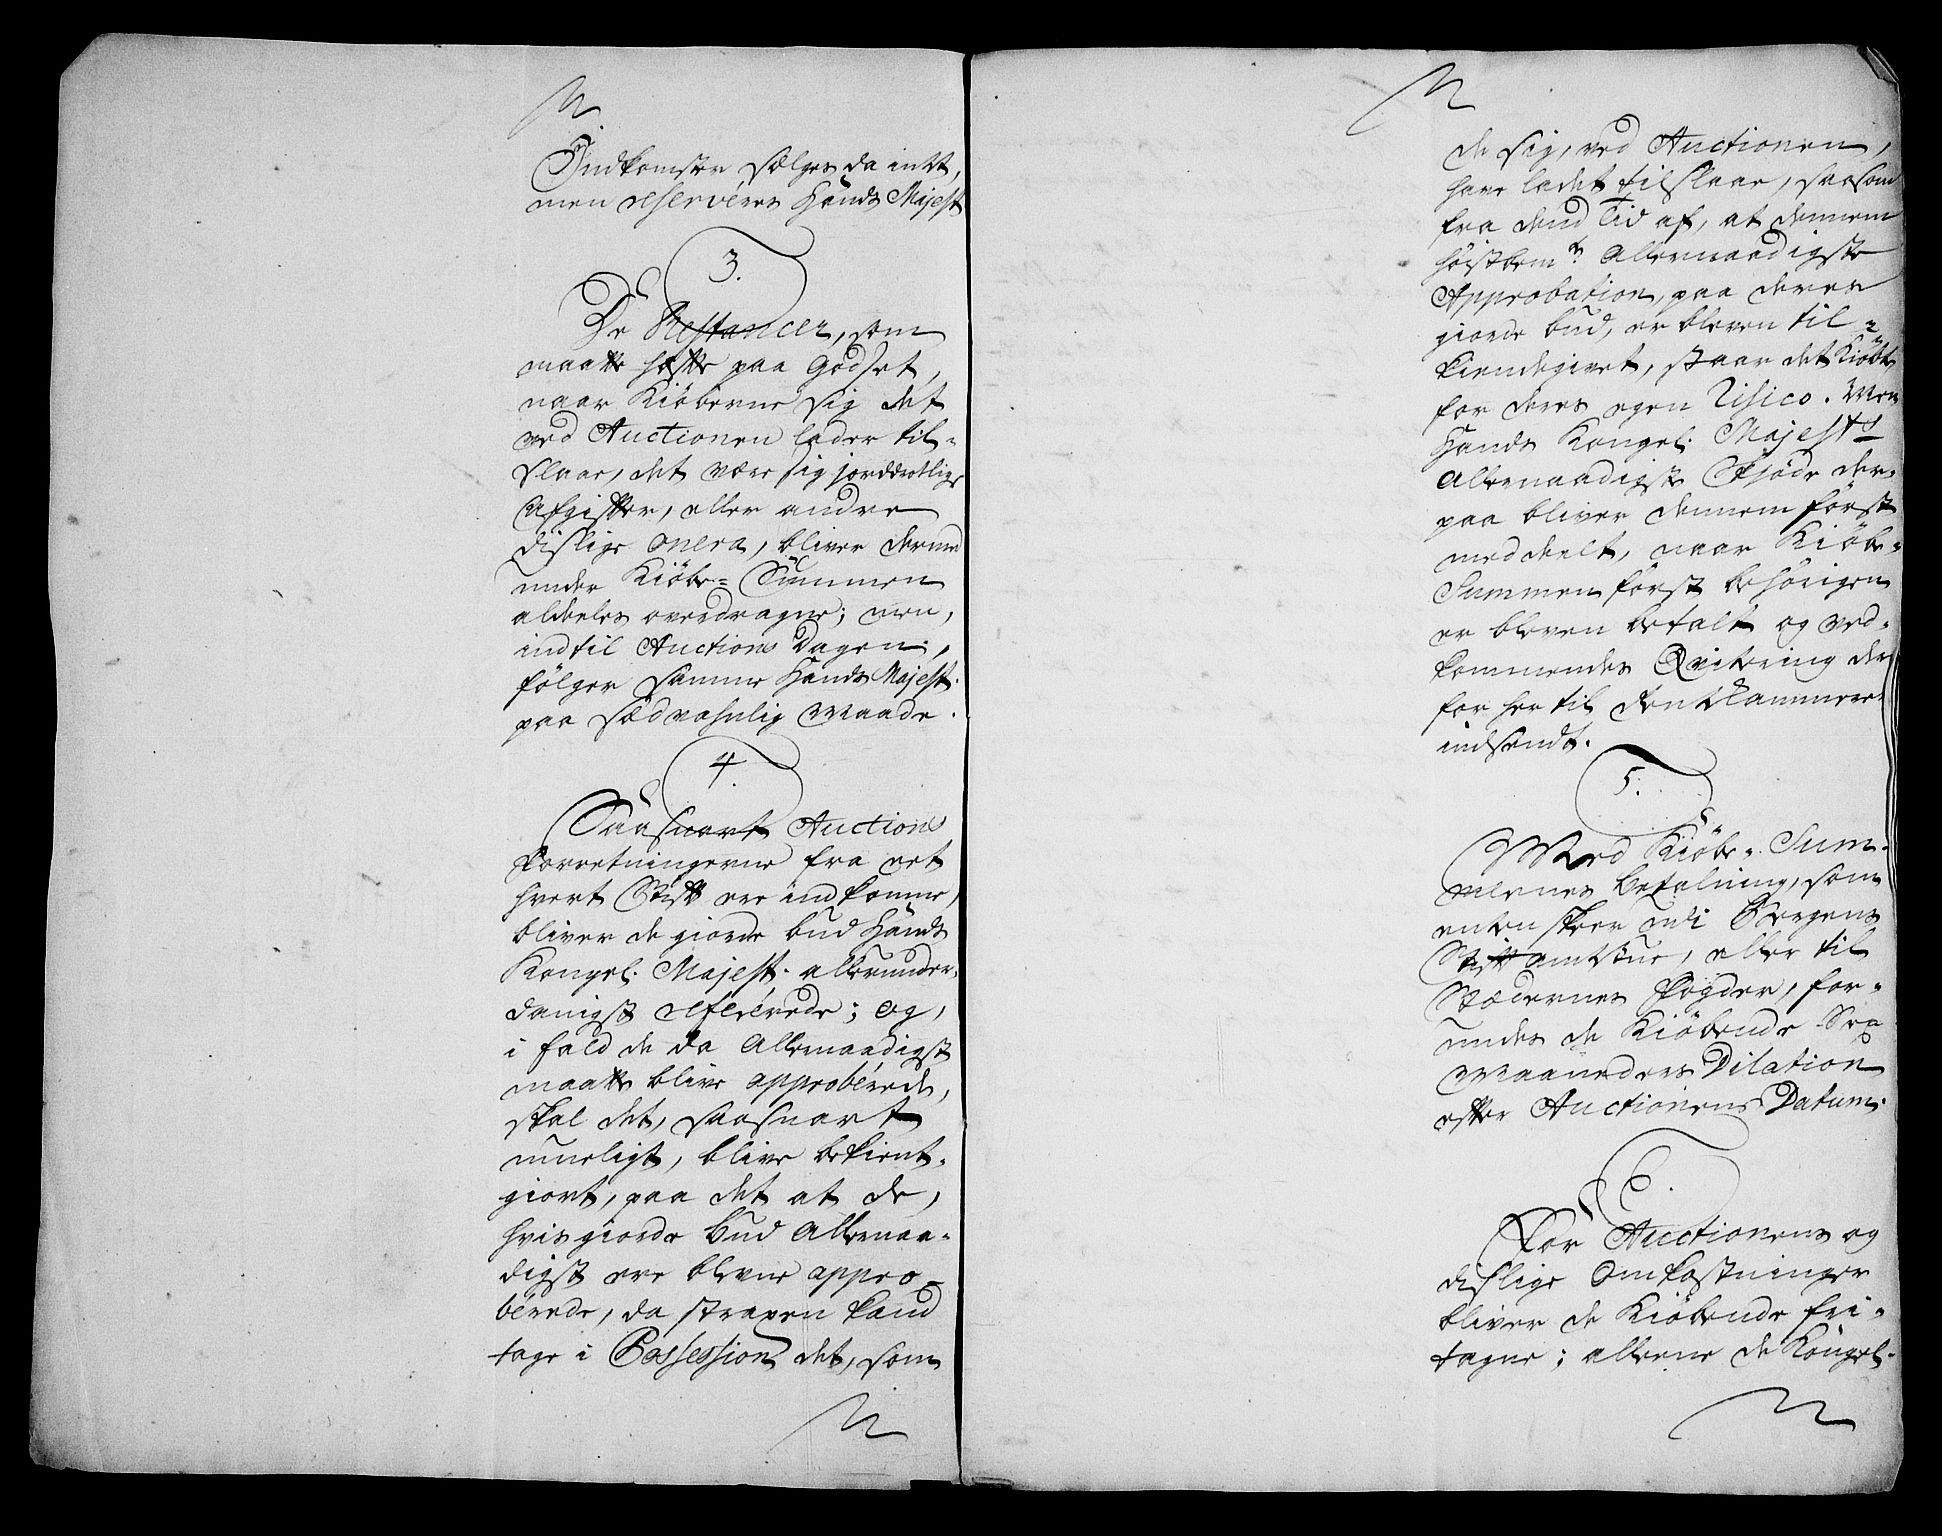 Indkomster sælges da intet,
men reserveres Hands Majest
3.
De Restancer, som
maatte hæfte paa Godset,
naar Kiöberne sig det
ved Auctionen lader til-
slaae, det være sig jorddrotlige
Afgifter, eller andre
dislige onera, bliver dermed
under Kiöbe= Summen
aldeeles overdragne; men,
indtil Auctions Dagen,
fölger samme Hands Majest.
paa sædvahnlig Maade.
4.
Saasnart Auctions
Forretningerne fra eet
hvert Stift ere indkomne,
bliver de giorde bud Hands
Kongel. Majest. allerunder-
danigst refererede; og,
i fald de da Allernaadigst
maatte blive approberede,
skal det, saasnart
mueligt, blive bekient-
giort, paa det at de,
hvis giorde bud Allernaa-
digst ere blevne appro-
berede, da straxen kand
tage i Possession det, som
de sig, ved Auctionen,
have ladet tilslaae, saasom
fra dend Tid af, at dennem
höistbem.te Allernaadigste
Approbation, paa deres
giorde bud, er bleven til-
kiendegivet, staar det Kiöbte
for deres egen Risico. Men
Hands Kongel. Majests
Allernaadigste Skjöde der-
paa bliver dennem först
meddeelt, naar Kiöbe-
Summen först behörigen
er bleven betalt og ved-
kommendes Qvitering der
for her til Rente Kammeret
indsendt.
5.
Med Kiöbe- Sum-
mernes betalning, som
enten skeer udi Bergens
Stiftamtstue, eller til
Stædernes Fogder, for-
undes de Kiöbende Sex
Maaneders Dilation
efter Auctionens Datum.
6.
For Auctionens og
dislige Omkostninger
bliver de Kiöbende fri-
tagne; alleene de Kongel.